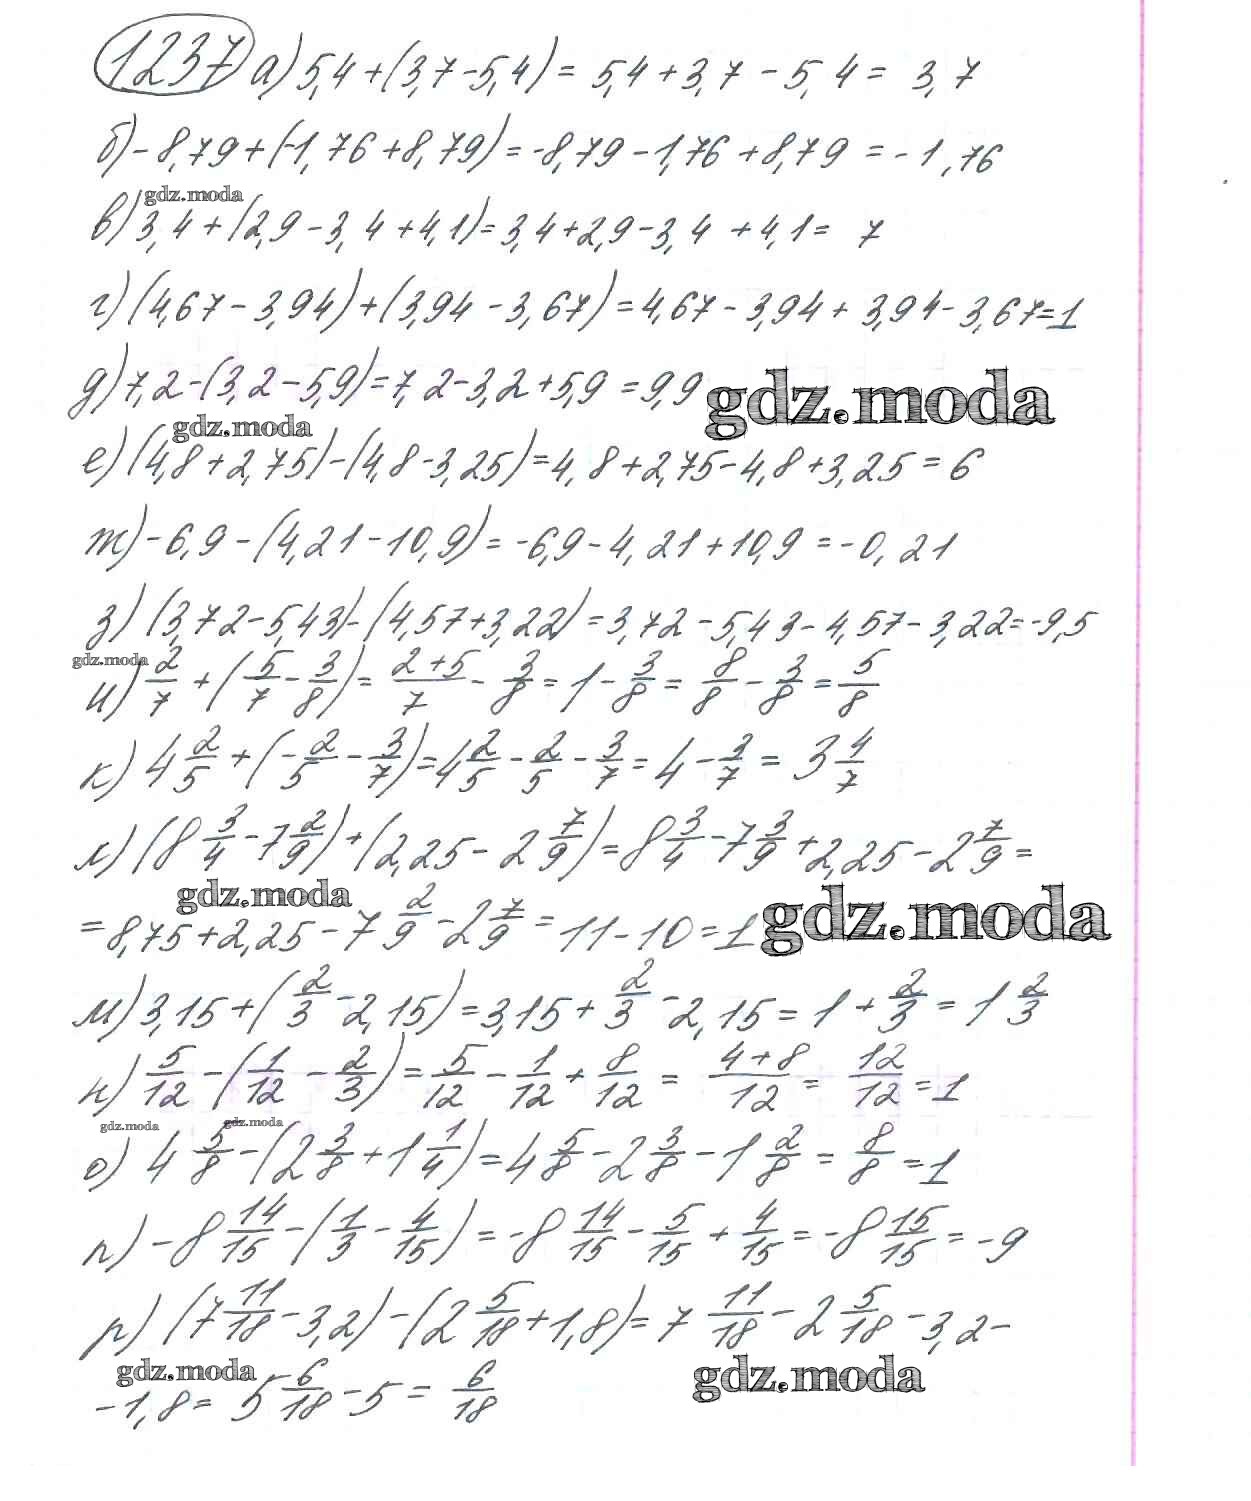 1237 а) 5,4 + (3,7 - 5,4) = 5,4 + 3,7 - 5,4 = 3,7
б) - 8,79 + (-1,76 + 8,79) = -8,79 - 1,76 + 8,79 = -1,76
gdz.moda
в) 3,4 + (2,9 - 3,4 + 4,1) = 3,4 + 2,9 - 3,4 + 4,1 = 7
г) (4,67 - 3,94) + (3,94 - 3,67) = 4,67 - 3,94 + 3,94 - 3,67 = 1
д) 7,2 - (3,2 - 5,9) = 7,2 - 3,2 + 5,9 = 9,9
gdz.moda
gdz.moda
е) (4,8 + 2,75) - (4,8 - 3,25) = 4,8 + 2,75 - 4,8 + 3,25 = 6
ж) - 6,9 - (4,21 - 10,9) = -6,9 - 4,21 + 10,9 = -0,21
з) (3,72 - 5,43) - (4,57 + 3,22) = 3,72 - 5,43 - 4,57 - 3,22 = -9,5
gdz.moda
и) 2/7 + (5/7 - 3/8) = (2+5)/7 - 3/8 = 1 - 3/8 = 8/8 - 3/8 = 5/8
к) 4 2/5 + (- 2/5 - 3/7) = 4 2/5 - 2/5 - 3/7 = 4 - 3/7 = 3 4/7
л) (8 3/4 - 7 2/9) + (2,25 - 2 7/9) = 8 3/4 - 7 3/9 + 2,25 - 2 7/9 =
gdz.moda
= 8,75 + 2,25 - 7 2/9 - 2 7/9 = 11 - 10 = 1
gdz.moda
м) 3,15 + (2/3 - 2,15) = 3,15 + 2/3 - 2,15 = 1 + 2/3 = 1 2/3
н) 5/12 - (1/12 - 2/3) = 5/12 - 1/12 + 8/12 = (4+8)/12 = 12/12 = 1
gdz.moda
gdz.moda
о) 4 5/8 - (2 3/8 + 1 1/4) = 4 5/8 - 2 3/8 - 1 2/8 = 8/8 = 1
п) - 8 14/15 - (1/3 - 4/15) = -8 14/15 - 5/15 + 4/15 = -8 15/15 = -9
р) (7 11/18 - 3,2) - (2 5/18 + 1,8) = 7 11/18 - 2 5/18 - 3,2 -
gdz.moda
gdz.moda
- 1,8 = 5 6/18 - 5 = 6/18